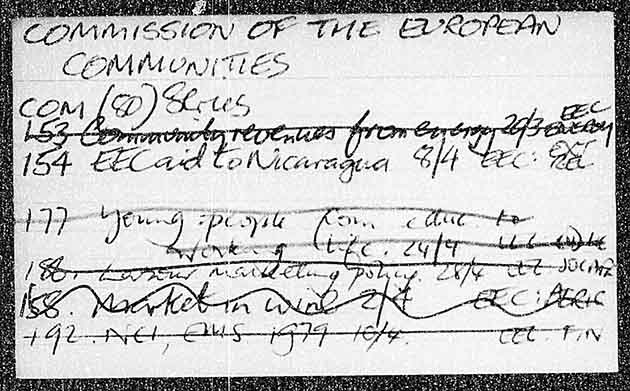 COMMISSION OF THE EUROPEAN
COMMUNITIES
COM (80) Series
EEC
153 Community revenues from energy 20/3 ENERGY
154 EEC aid to Nicaragua 8/4 EEC: EXT REL
177 Young people from educ. to
working life. 24/4 EEC
186. Labour market policy. 28/4 EEC
158. Market in wine 2/4 EEC: AGRIC
192. NCI, EMS 1979 10/4. EEC. FIN